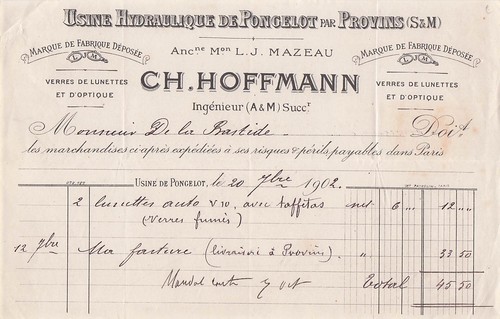 USINE HYDRAULIQUE DE PONGELOT PAR PROVINS (S&M)
MARQUE DE FABRIQUE DÉPOSÉE
LJM
VERRES DE LUNETTES
ET D'OPTIQUE
Ancne Mon L. J. MAZEAU
CH. HOFFMANN
Ingénieur (A&M) Succr
MARQUE DE FABRIQUE DÉPOSÉE
LJM
VERRES DE LUNETTES
ET D'OPTIQUE
Monsieur De la Bastide Doit
les marchandises ci-après expédiées à ses risques & périls, payables dans Paris
USINE DE PONGELOT, le 20 7bre 1902.
2 lunettes auto V 10, avec taffetas net 6 " 12 "
(verres fumés)
12 7bre Ma facture (livraison à Provins) " 33 50
Mandat 7 oct Total 45 50